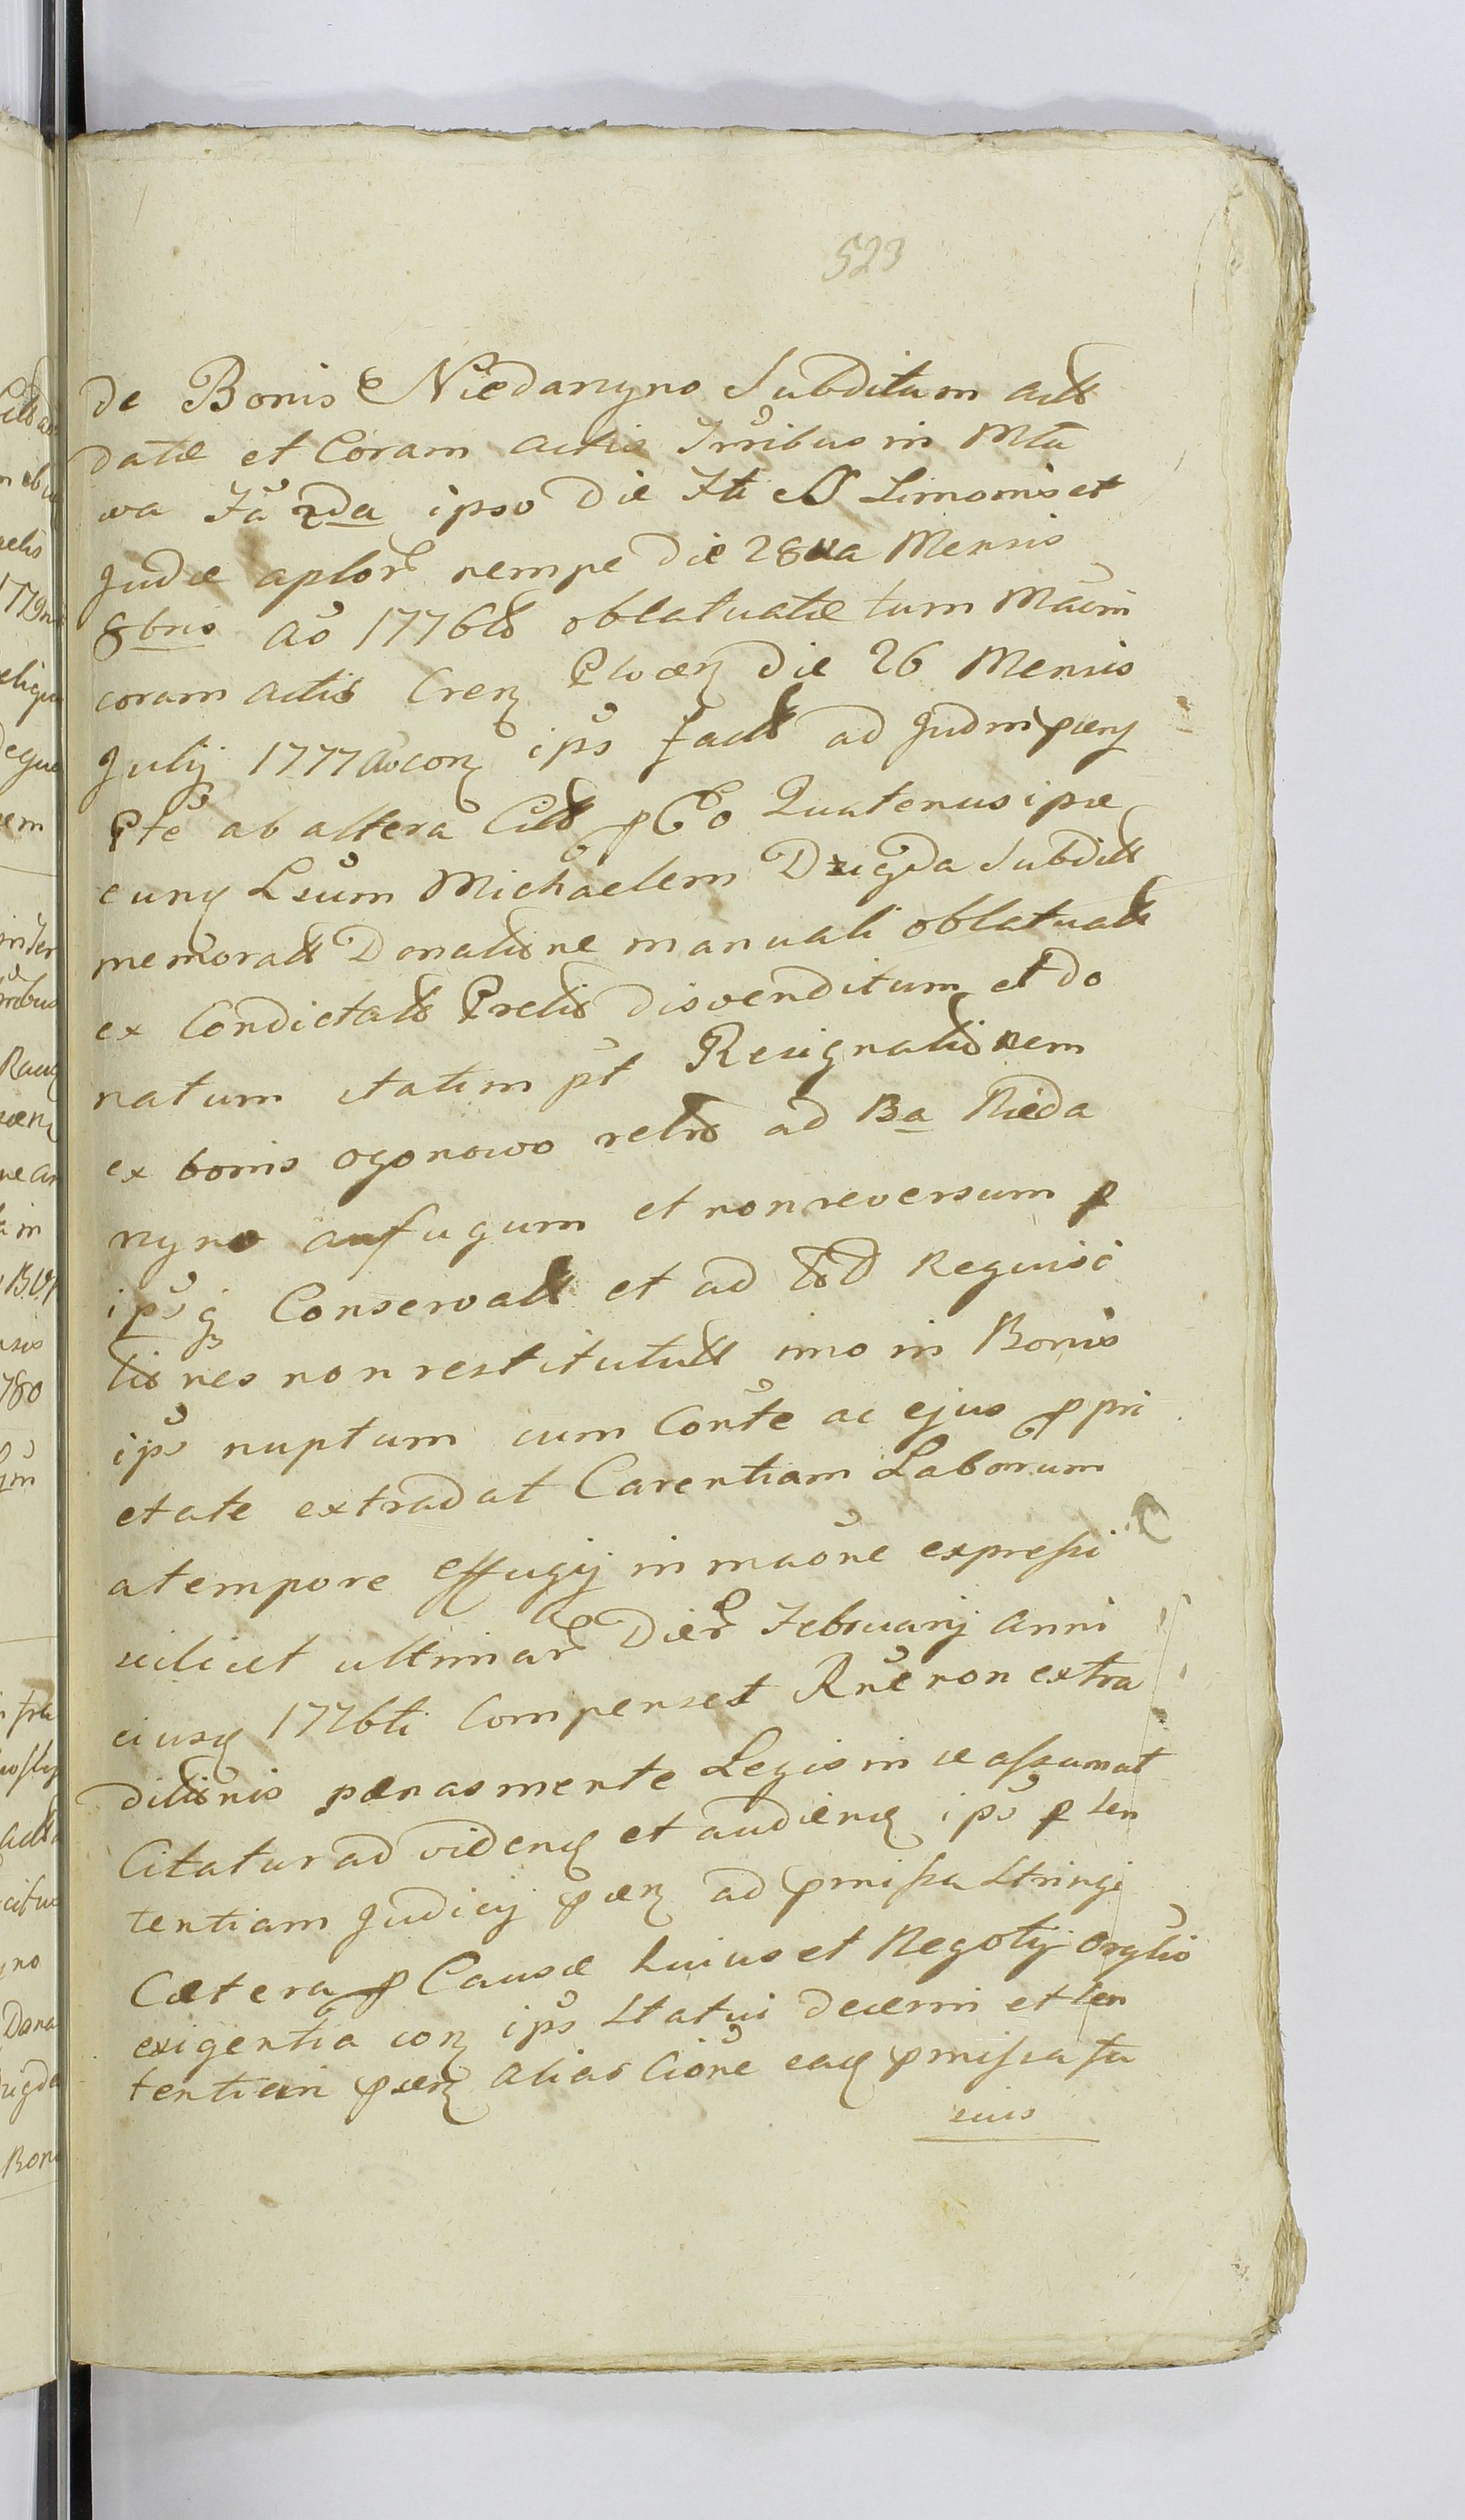 523
de Bonis Niedarzyno Subditum actt
datæ et Coram actis Trribus in Mła
wa Fa 2da ipso die Fti SS Simonis et
Judæ aplor nempe die 28va Mensis
8bris Ao 1776to oblatuatæ tum Maĩm
coram actis Cren Plocen die 26 Mensis
Julij 1777 ao con ips fact ad Judm pñs
Pte ab altera Citt pto Quatenus ipse
eunq Lsum Michaelem Dzigda Subditt
memoratt Donatione manuali oblatuatt
ex Condictatt Pretio disvenditum et do
natum statim pt Resignationem
ex bonis Ogonowo retro ad Ba Nieda
rzyno aufugum et non reversum p
ips q Conservatt et ad Requisi
tiones non restitututt imo in Bonis
ips nuptum cum Conte ac ejus ppri
etate extradat Carentiam Laborum
a tempore effugij in maone expressi
scilicet ultimar Dier Februarij Anni
ejusq 1776ti Compenset Rne non extra
ditionis pænas mente Legis in se assumat
Citatur ad videnq et audienq ips p sen
tentiam Judicij pñs ad pmissa stringi
Cætera p Causæ huius et Negotij Orgtis
exigentia con ips statui decerni et sen
tentiari pñs alias Cione eaq pmissa su
suis